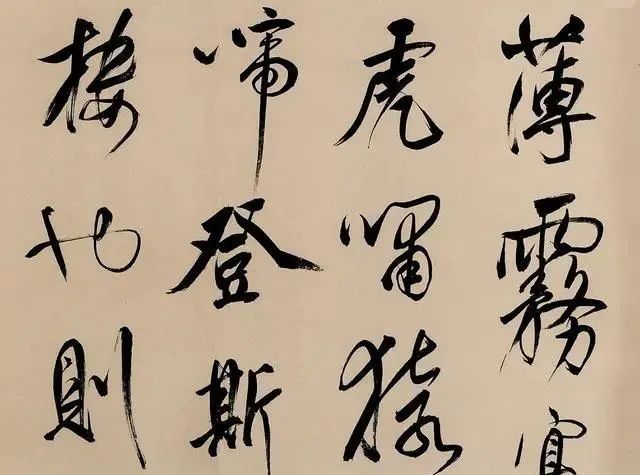 薄霧
虎嘯猿
啼登斯
樓也則